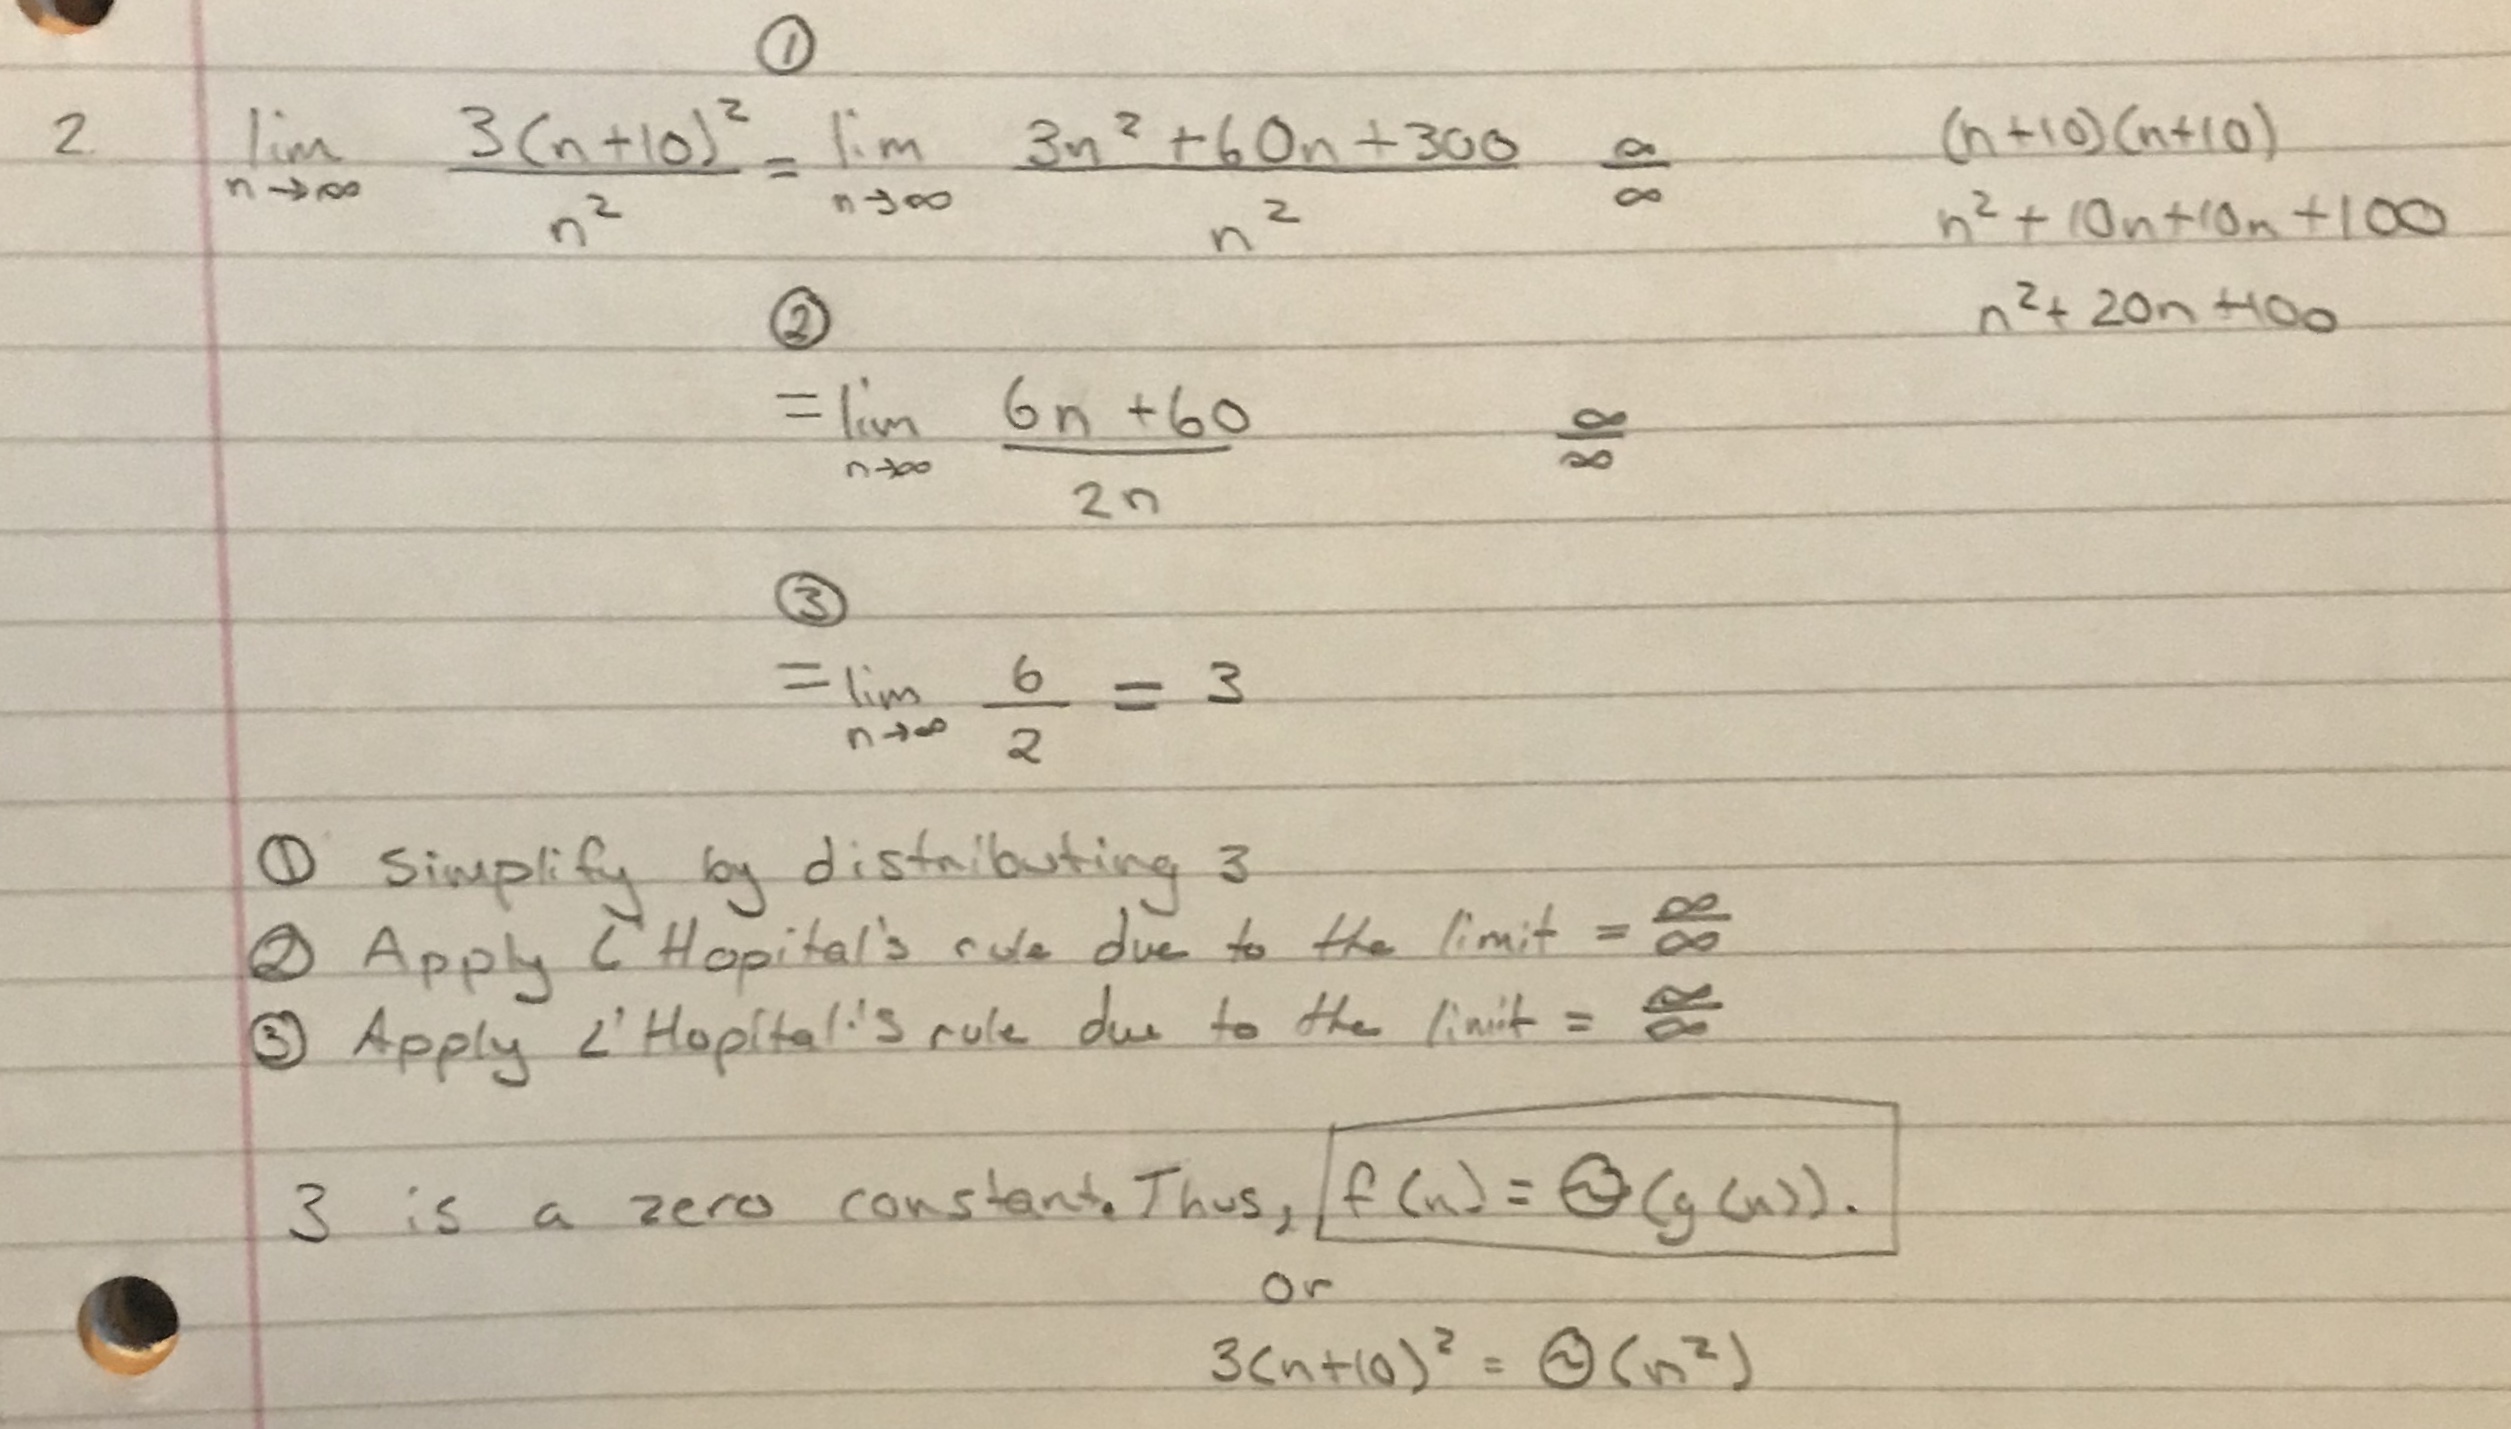 ①
2. lim n→∞ 3(n+10)² / n² = lim n→∞ 3n² + 60n + 300 / n² ∞/∞
(n+10)(n+10)
n² + 10n + 10n + 100
n² + 20n + 100
②
= lim n→∞ 6n + 60 / 2n ∞/∞
③
= lim n→∞ 6/2 = 3
① Simplify by distributing 3
② Apply L'Hopital's rule due to the limit = ∞/∞
③ Apply L'Hopital's rule due to the limit = ∞/∞
3 is a zero constant. Thus, f(n) = Θ(g(n)).
or
3(n+10)² = Θ(n²)